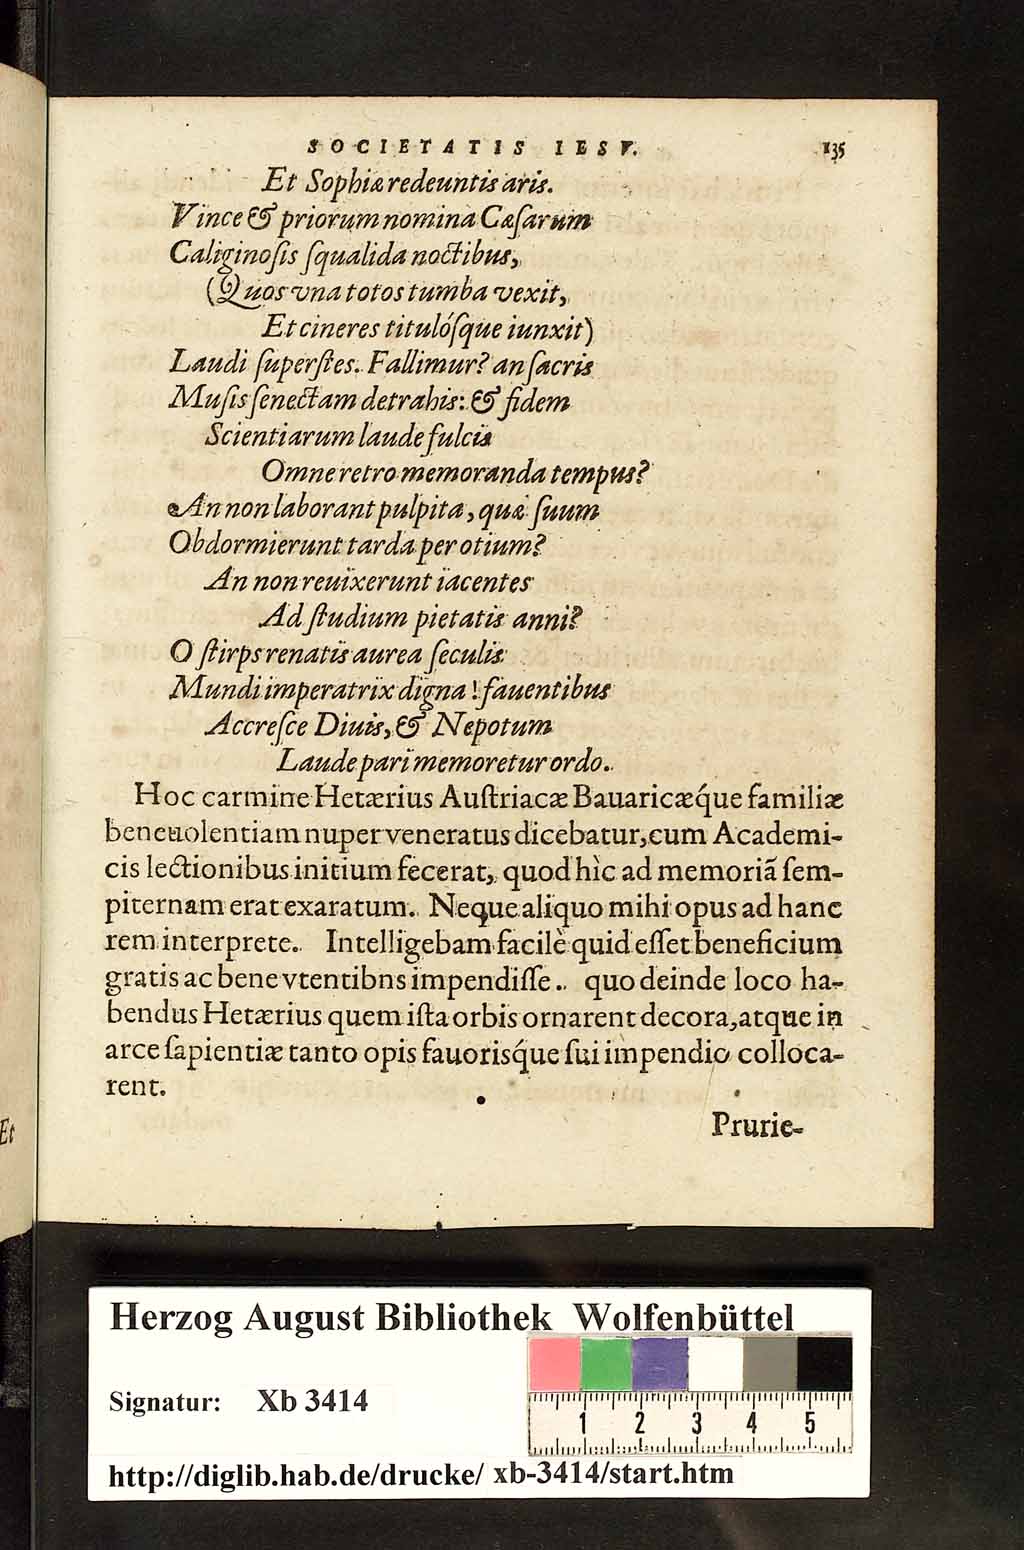 SOCIETATIS IESV. 135
Et Sophiæ redeuntis aris.
Vince & priorum nomina Cæſarum
Caliginoſis ſqualida noctibus,
(Quos vna totos tumba vexit,
Et cineres titulóſque iunxit)
Laudi ſuperſtes. Fallimur? an ſacris
Muſis ſenectam detrahis: & fidem
Scientiarum laude fulcis
Omne retro memoranda tempus?
An non laborant pulpita, quæ ſuum
Obdormierunt tarda per otium?
An non reuixerunt iacentes
Ad ſtudium pietatis anni?
O ſtirps renatis aurea ſeculis
Mundi imperatrix digna! fauentibus
Accreſce Diuis, & Nepotum
Laude pari memoretur ordo.
Hoc carmine Hetærius Auſtriacæ Bauaricæq́ue familiæ
beneuolentiam nuper veneratus dicebatur, cum Academi-
cis lectionibus initium fecerat, quod hìc ad memoriã ſem-
piternam erat exaratum. Neque aliquo mihi opus ad hanc
rem interprete. Intelligebam facilè quid eſſet beneficium
gratis ac bene vtentibns impendiſſe. quo deinde loco ha-
bendus Hetærius quem iſta orbis ornarent decora, atque in
arce ſapientiæ tanto opis fauorisq́ue ſui impendio colloca-
rent.
Prurie-
Et
Herzog August Bibliothek Wolfenbüttel
Signatur: Xb 3414
1 2 3 4 5
http://diglib.hab.de/drucke/ xb-3414/start.htm